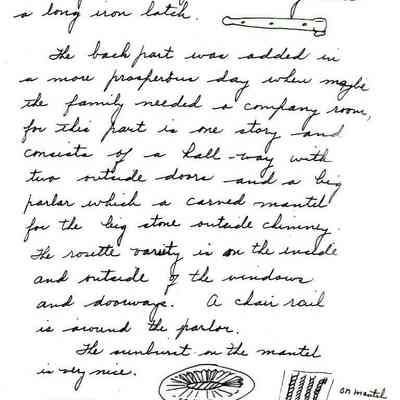 a long iron latch.
The back part was added in
a more prosperous day when maybe
the family needed a company room,
for this part is one story and
consists of a hall-way with
two outside doors and a big
parlor which a carved mantel
for the big stone outside chimney.
The rosette variety is on the inside
and outside of the windows
and doorways. A chair rail
is around the parlor.
The sunburst on the mantel
is very nice.
on mantel